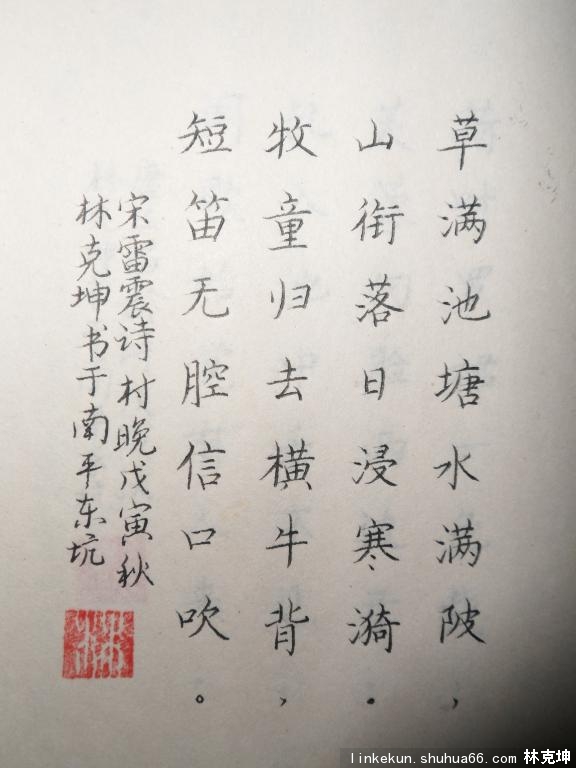 草满池塘水满陂，
山衔落日浸寒漪。
牧童归去横牛背，
短笛无腔信口吹。
宋雷震诗 村晚 戊寅秋
林克坤书于南平东坑
linkekun.shuhua66.com 林克坤